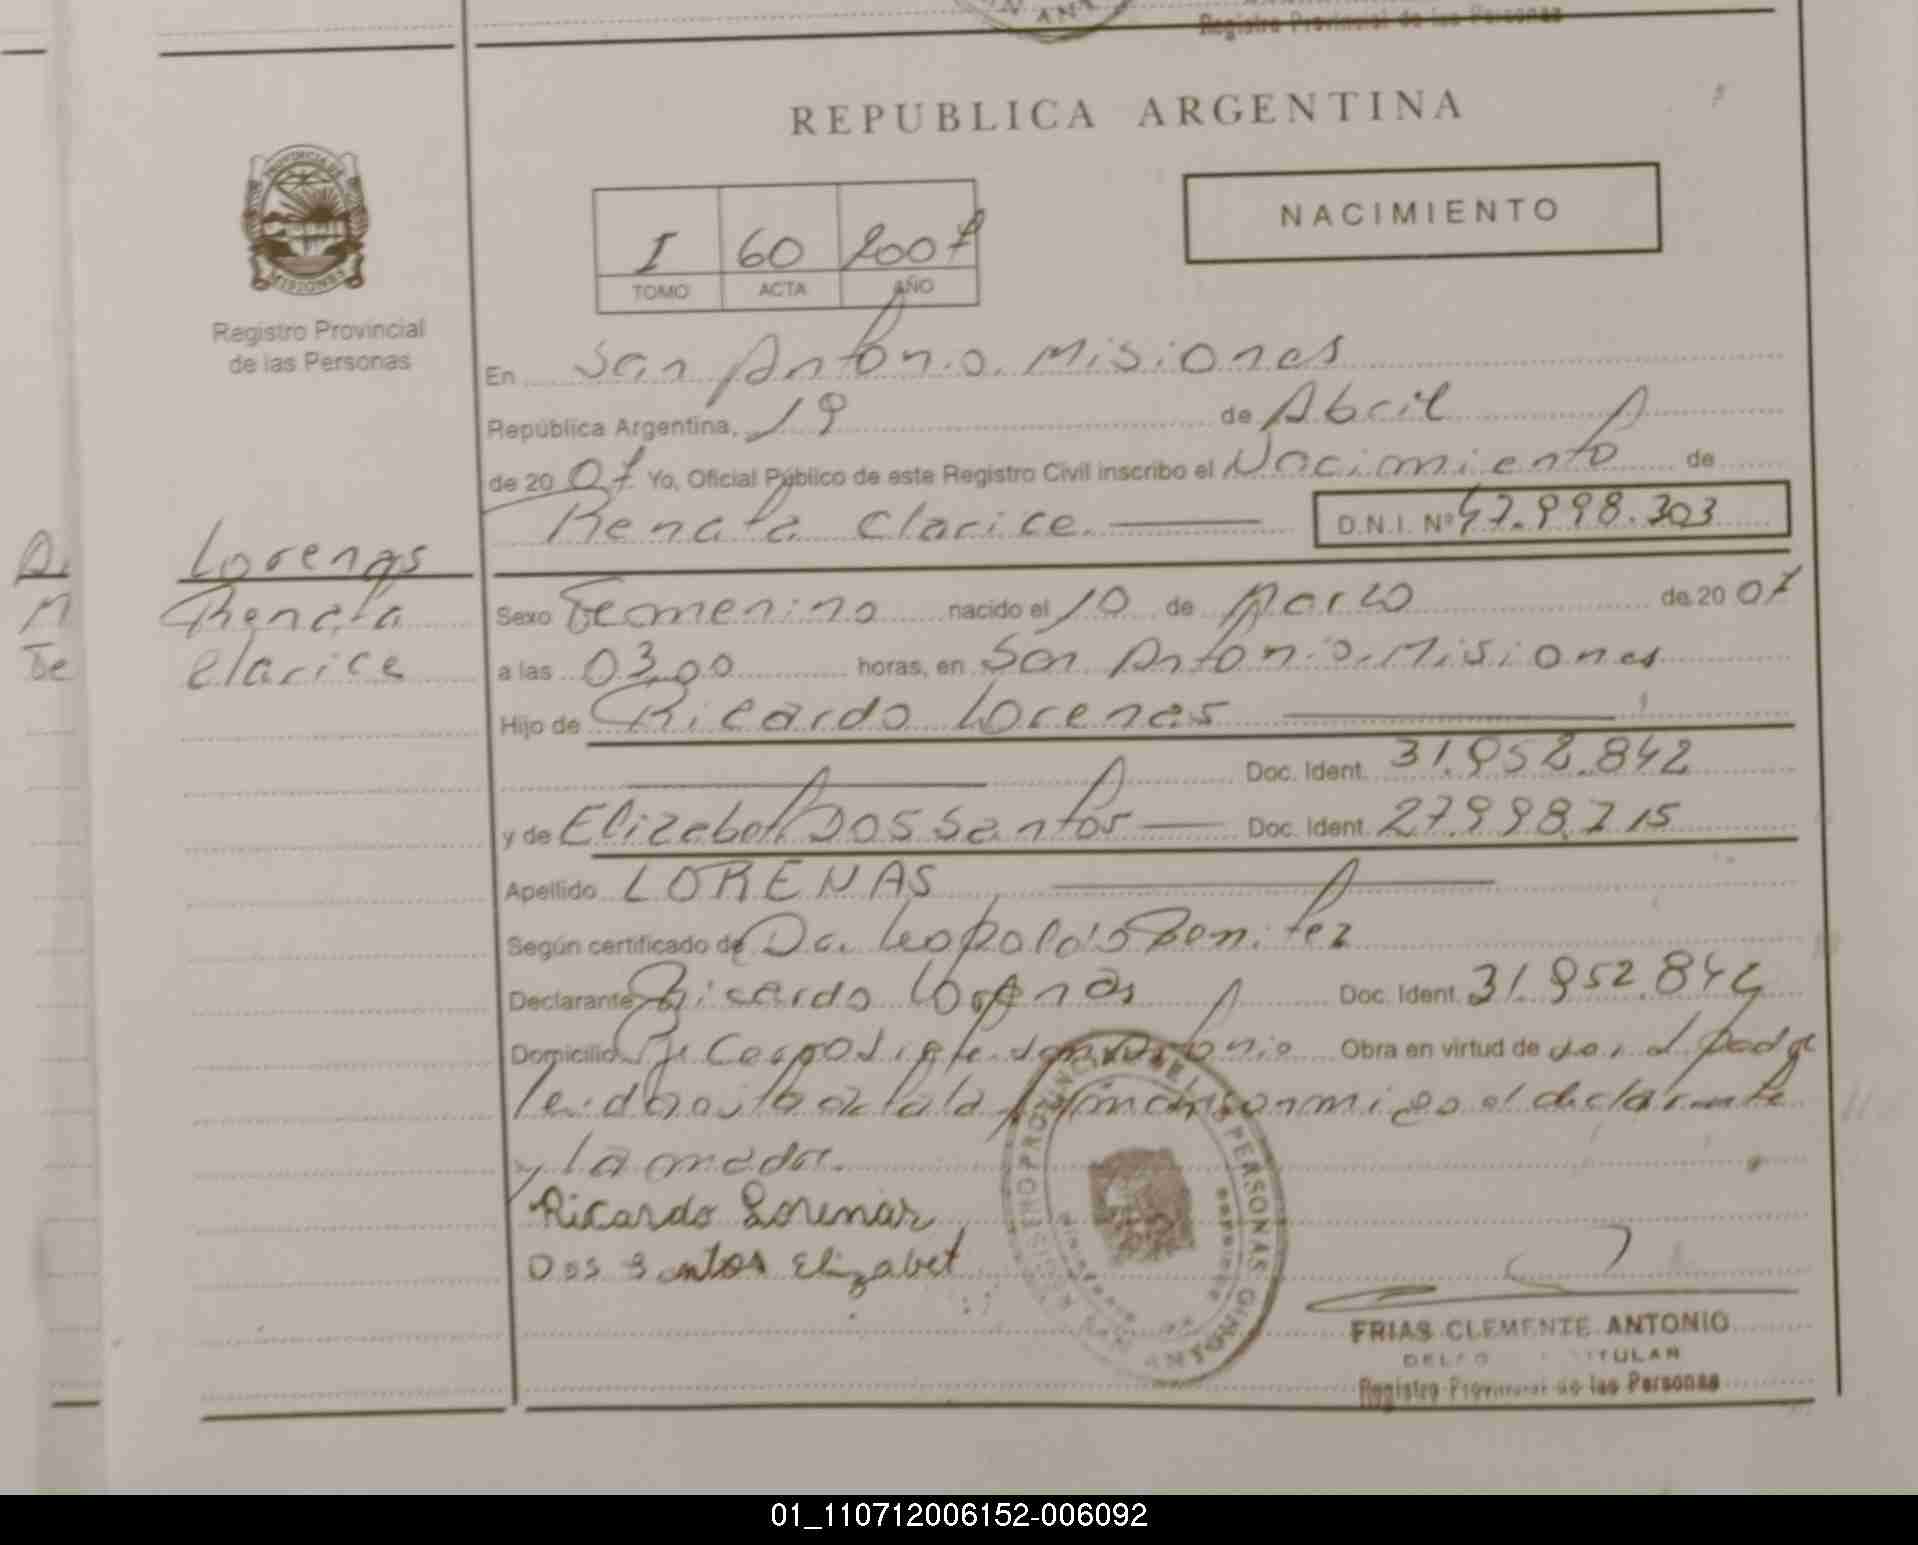 Registro Provincial de las Personas
REPUBLICA ARGENTINA
NACIMIENTO
PROVINCIA DE
MISIONES
Registro Provincial
de las Personas
I 60 2007
TOMO ACTA AÑO
En San Antonio. Misiones
República Argentina, 19 de Abril
de 2007 Yo, Oficial Público de este Registro Civil inscribo el Nacimiento de
Renata Clarice D.N.I. Nº 47.998.303
Lorenas
Renata
Clarice
Sexo Femenino nacido el 10 de Marzo de 2007
a las 03,00 horas, en San Antonio. Misiones
Hijo de Ricardo Lorenas
Doc. Ident. 31.952.842
y de Elizabet Dos Santos Doc. Ident. 27.998.715
Apellido LORENAS
Según certificado de Da. Leopoldo Benitez
Declarante Ricardo Lorenas Doc. Ident. 31.952.842
Domicilio San Antonio Obra en virtud de
Leida firman conmigo el declarante
y la madre.
Ricardo Lorenas
Dos Santos Elizabet
REGISTRO PROVINCIAL DE LAS PERSONAS
FRIAS CLEMENTE ANTONIO
TITULAR
Registro Provincial de las Personas
01_110712006152-006092